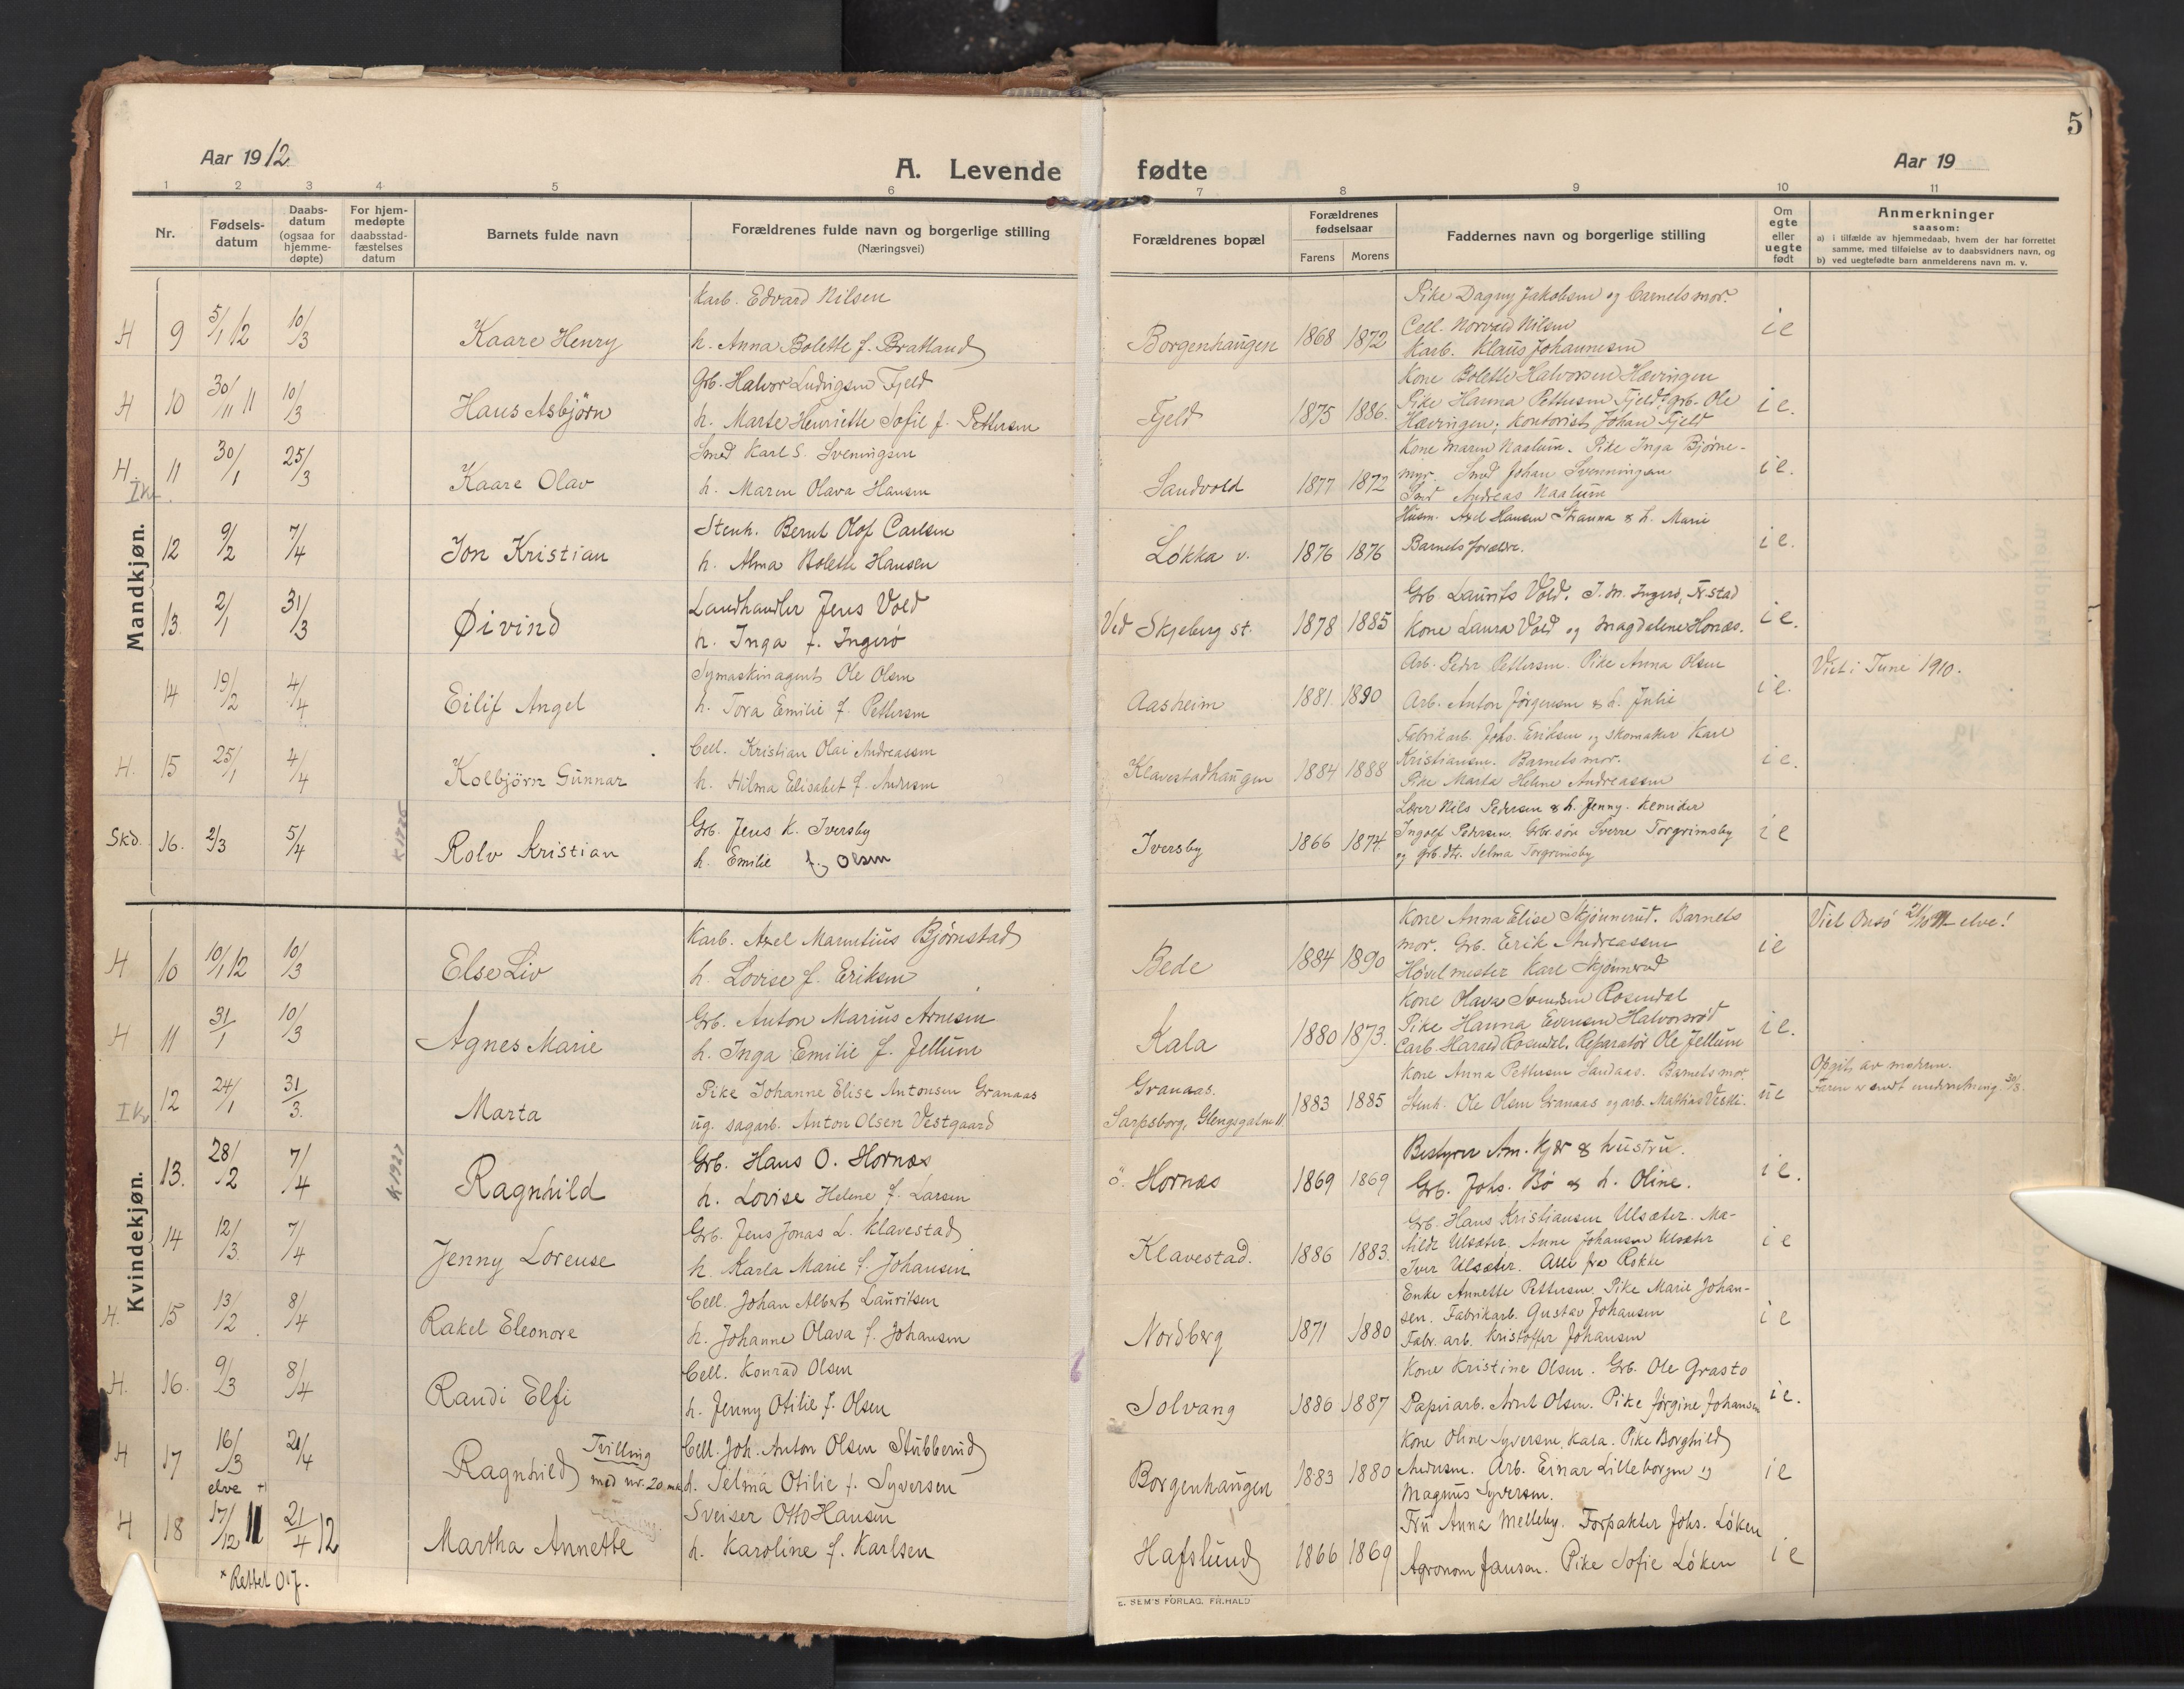 5
Aar 1912
A. Levende fødte
Aar 19
1 2 3 4 5 6 7 8 9 10 11
Nr.
Fødsels-
datum
Daabs-
datum
(ogsaa for
hjemme-
døpte)
For hjem-
medøpte
daabsstad-
fæstelses
datum
Barnets fulde navn
Forældrenes fulde navn og borgerlige stilling
(Næringsvei)
Forældrenes bopæl
Forældrenes
fødselsaar
Farens Morens
Faddernes navn og borgerlige stilling
Om
egte
eller
uegte
født
Anmerkninger
saasom:
a) i tilfælde av hjemmedaab, hvem der har forrettet
samme, med tilføielse av to daabsvidners navn, og
b) ved uegtefødte barn anmelderens navn m. v.
Mandkjøn.
H 9 5/1 12 10/3 Kaare Henry
Karb. Edvard Nilsen
h. Anna Bolette f. Bratland
Borgenhaugen 1868 1872
Pike Dagny Jakobsen og barnets mor.
Cell. Norvald Nilsen
Karb. Klaus Johannesen
ie
H 10 30/11 11 10/3 Hans Asbjörn
Grb. Halvor Ludvigsen Fjeld
h. Marte Henriette Sofie f. Pettersen
Fjeld 1875 1886.
Kone Bolette Halvorsen Hævingen
Pike Hanna Pettersen Fjeld; grb. Ole
Hævingen; Kontorist Johan Fjeld
ie.
H. 11 30/1 25/3 Kaare Olav
Smed Karl S. Sveningsen
h. Maren Olava Hansen
Sandvold 1877 1872
Kone Maren Naalum. Pike Inga Bjørne-
myr. Smed Johan Svenningsen
Smed Andreas Naalum
ie.
12 9/2 7/4 Jon Kristian
Stenh. Bernt Olof Carlsen
h. Alma Bolette Hansen
Løkka v. 1876 1876
Husm. Axel Hansen Stranna & h. Marie
Barnets forældre.
ie.
13. 2/1 31/3 Øivind
Landhandler Jens Vold
h. Inga f. Ingerö
Ved Skjeberg st. 1878 1885
Grb. Laurits Vold. J. M. Ingerö, Fr.stad
Kone Laura Vold og Magdalene Hornæs.
ie.
14 19/2 4/4 Eilif Angel
Symaskinagent Ole Olsen
h. Tora Emilie f. Pettersen
Aasheim 1881. 1890
Arb. Peder Pettersen. Pike Anna Olsen
Arb. Anton Jørgensen & h. Julie
ie.
Viet i June 1910.
H. 15 25/1 4/4 Kolbjörn Gunnar
Cell. Kristian Olai Andreassen
h. Hilma Elisabet f. Andersen
Klavestadhaugen 1884 1888
Fabrikarb. Johs. Eriksen og skomaker Karl
Kristiansen. Barnets mor.
Pike Marta Helene Andreassen
ie.
Skd. 16. 2/3 5/4 Rolv Kristian
Grb. Jens K. Iversby
h. Emilie f. Olsen
Iversby 1866 1874.
Lærer Nils Pedersen & h. Jenny. Kemiker
Ingolf Pedersen. Grbr.søn Sverre Torgrimsby
og grb.dtr. Selma Torgrimsby
ie
Kvindekjøn.
H 10 10/1 12 10/3 Else Liv
Karb. Axel Marentius Bjørnstad
h. Lovise f. Eriksen
Bede 1884 1890
Kone Anna Elise Skjönnerud. Barnets
mor. Grb. Erik Andreassen
Høvelmester Karl Skjönnerud
ie
Viet Onsö 21/10 11 elve!
H 11 31/1 10/3 Agnes Marie
Grb. Anton Marius Arnesen
h. Inga Emilie f. Jellum
Kala 1880 1873.
Kone Olava Svendsen Rosendal
Pike Hanna Evensen Halvorsrød
Carb. Harald Rosendal. Reparatør Ole Jellum
ie.
12 24/1 31/3. Marta
Pike Johanne Elise Antonsen Granaas
ug. sagarb. Anton Olsen Vestgaard
Granaas.
Sarpsborg, Glengsgaten 11. 1883 1885
Kone Anna Pettersen Sandaas. Barnets mor.
Stenh. Ole Olsen Granaas og arb. Mathias
ue
Opgit av moderen.
Faren er sendt underretning 30/3.
13. 28/2 7/4 K1927 Ragnhild
Grb. Hans O. Hornæs
h. Lovise Helene f. Larsen
ö. Hornæs 1869 1869
Bestyrer Am. Kjær & hustru.
Grb. Johs. Bø & h. Oline.
ie.
14 12/3 7/4 Jenny Lorense
Grb. Jens Jonas L. Klavestad
h. Karla Marie f. Johansen
Klavestad. 1886 1883.
Grb. Hans Kristiansen Ulsæter. Ma-
tilde Ulsæter. Anne Johansen Ulsæter
Iver Ulsæter. Alle fra Rokke
ie
H. 15 13/2 8/4 Rakel Eleonore
Cell. Johan Albert Lauritsen
h. Johanne Olava f. Johansen
Nordberg 1871 1880
Enke Annette Pettersen. Pike Marie Johan-
sen. Fabrikarb. Gustav Johansen
Fabr. arb. Kristoffer Johansen
ie
H. 16. 9/3 8/4 Randi Elfi
Cell. Konrad Olsen
h. Jenny Otilie f. Olsen
Solvang 1886 1887
Kone Kristine Olsen. Grb. Ole Grasto
Papirarb. Arnt Olsen. Pike Jørgine Johansen
ie.
H 17 16/3 21/4 Ragnhild Tvilling
med nr. 20 mk
Cell. Joh. Anton Olsen Stubberud
h. Selma Otilie f. Syversen
Borgenhaugen 1883 1880
Kone Oline Syversen, Kala. Pike Borghild
Andersen. Arb. Einar Lilleborgen og
Magnus Syversen.
ie
elve +
H 18 17/12 11 21/4 12 Martha Annette
Sveiser Otto Hansen
h. Karoline f. Karlsen
Hafslund 1866 1869
Fru Anna Melleby. Forpakter Johs. Løken
Agronom Jansen. Pike Sofie Løken
ie
* Rettet OJ.
E. SEM'S FORLAG, FR.HALD